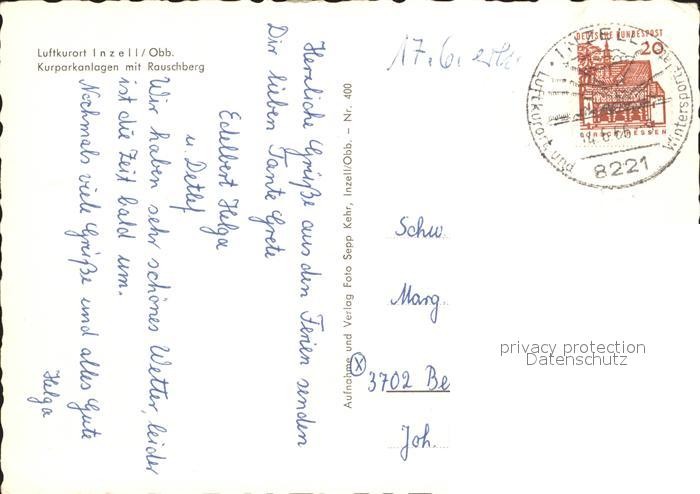 Luftkurort Inzell/Obb.
Kurparkanlagen mit Rauschberg
Herzliche Grüße aus den Ferien senden
Dir lieben Tante Grete
Edelbert Helga
u. Detlef
Wir haben sehr schönes Wetter, leider
ist die Zeit bald um.
Nochmals viele Grüße und alles Gute
Helga
Aufnahme und Verlag Foto Sepp Kehr, Inzell/Obb. – Nr. 400
17.6.
DEUTSCHE BUNDESPOST
20
INZELL
Luftkurort und Wintersportplatz
8221
Schw.
Marg.
3702 Be
Joh.
privacy protection
Datenschutz